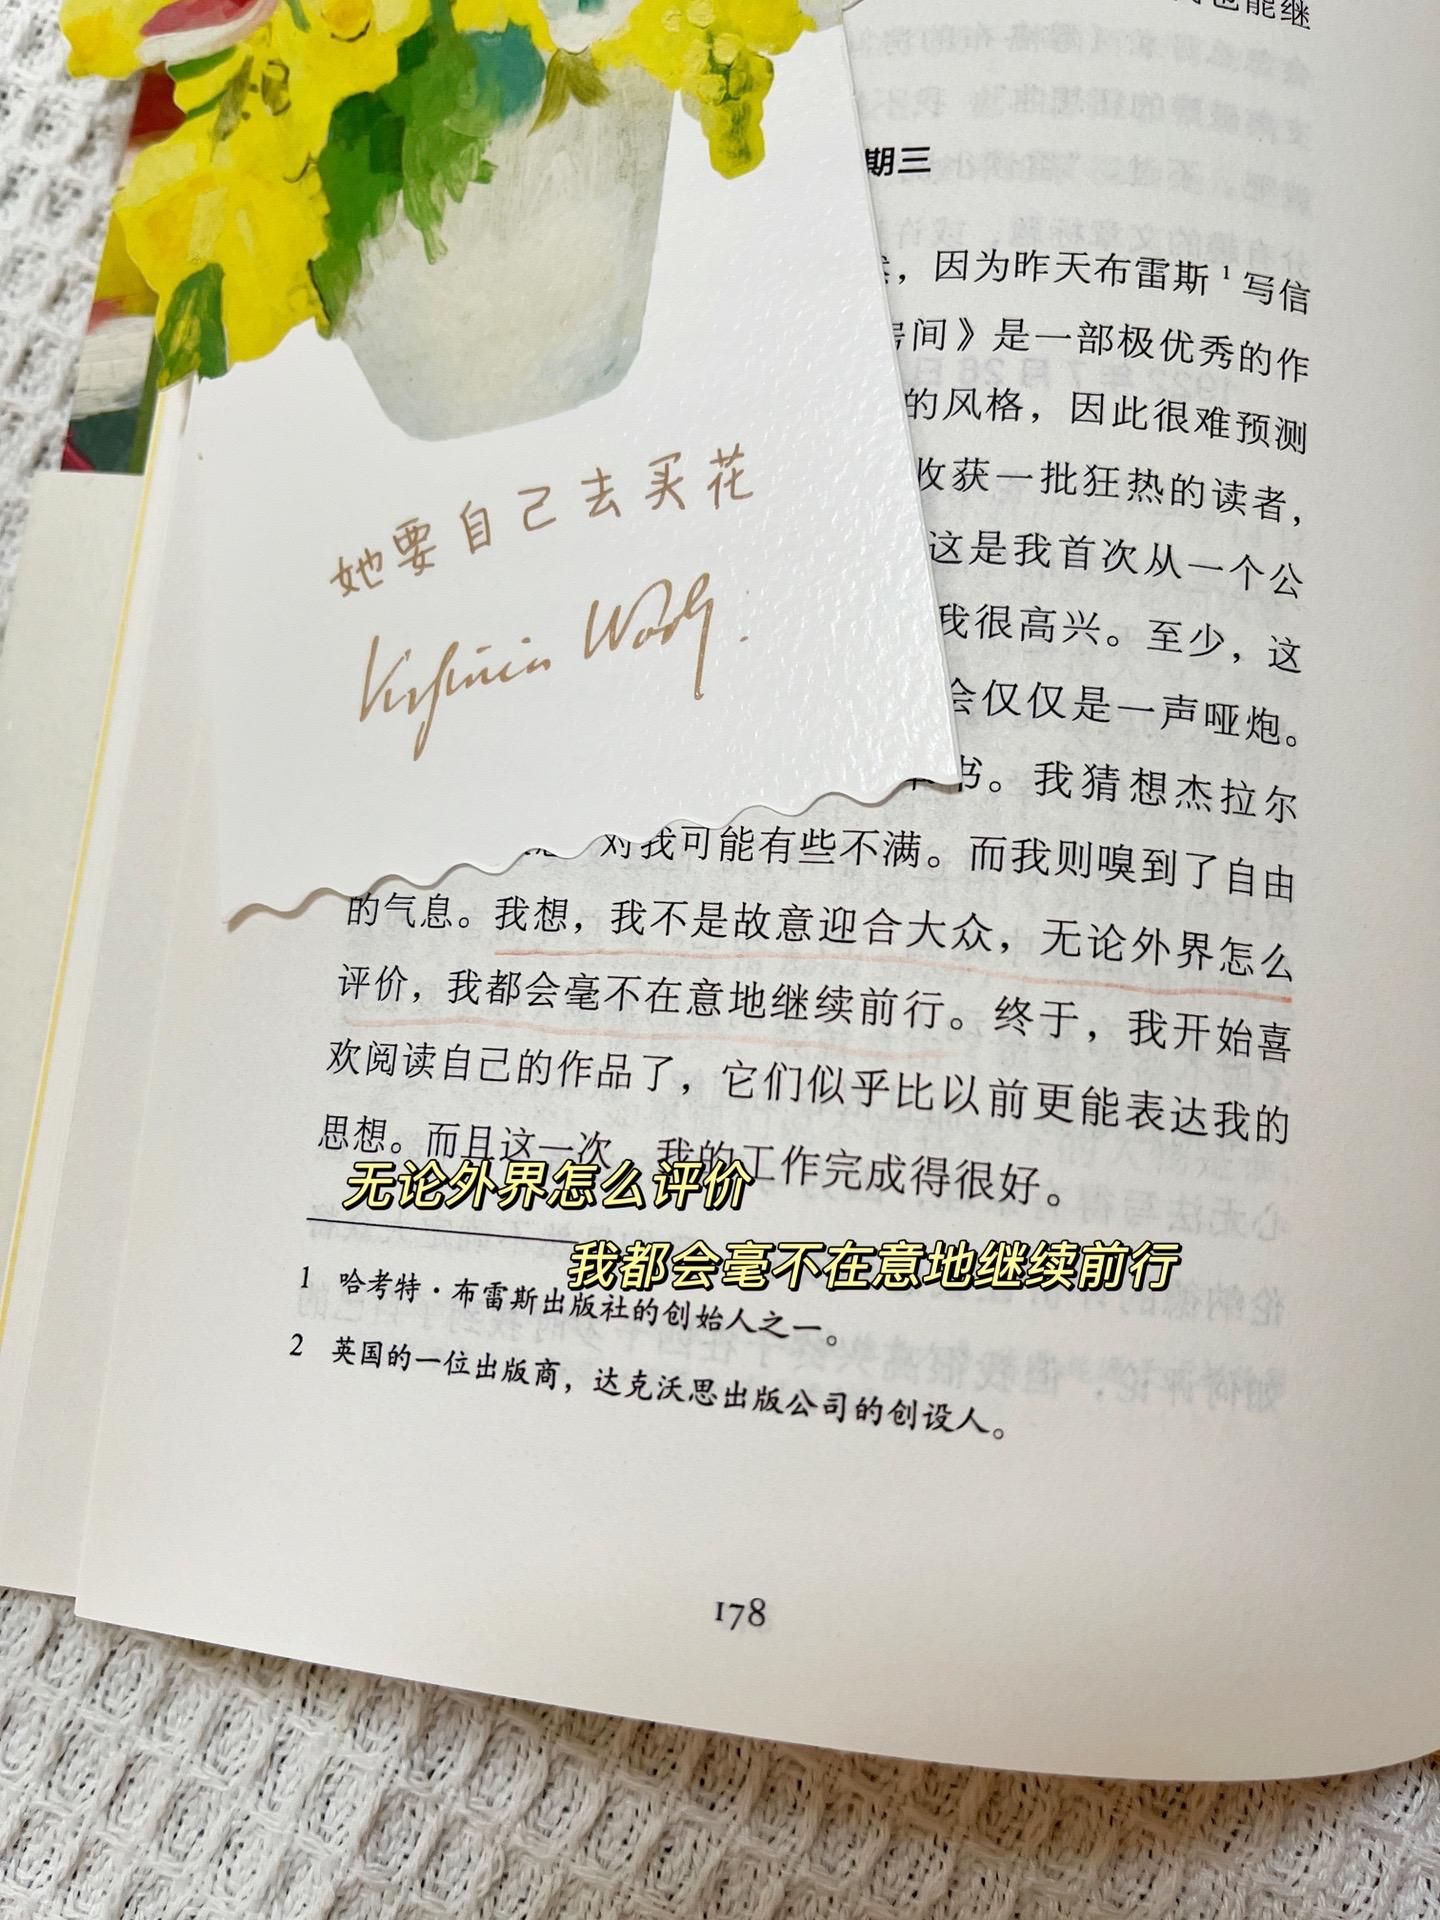 也能继
期三
，因为昨天布雷斯¹写信
房间》是一部极优秀的作
的风格，因此很难预测
收获一批狂热的读者，
这是我首次从一个公
我很高兴。至少，这
会仅仅是一声哑炮。
书。我猜想杰拉尔
对我可能有些不满。而我则嗅到了自由
的气息。我想，我不是故意迎合大众，无论外界怎么
评价，我都会毫不在意地继续前行。终于，我开始喜
欢阅读自己的作品了，它们似乎比以前更能表达我的
思想。而且这一次 我的工作完成得很好。
她要自己去买花
Virginia Woolf.
无论外界怎么评价
我都会毫不在意地继续前行
1 哈考特·布雷斯出版社的创始人之一。
2 英国的一位出版商，达克沃思出版公司的创设人。
178